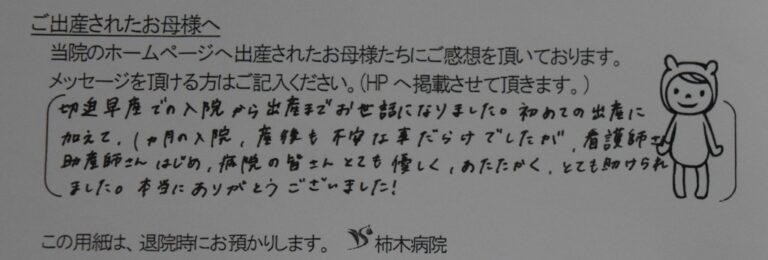 ご出産されたお母様へ
当院のホームページへ出産されたお母様たちにご感想を頂いております。
メッセージを頂ける方はご記入ください。(HPへ掲載させて頂きます。)
切迫早産での入院から出産までお世話になりました。初めての出産に
加えて、1ヵ月の入院、産後も不安な事だらけでしたが、看護師さ
助産師さんはじめ、病院の皆さんとても優しく、あたたかく、とても助けられ
ました。本当にありがとうございました!
この用紙は、退院時にお預かりします。 柿木病院